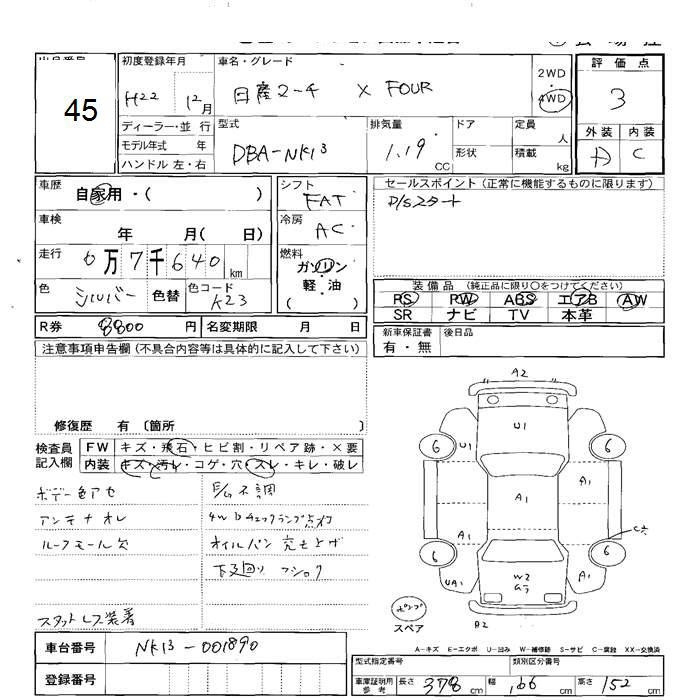 45
初度登録年月
H22 12月
車名・グレード
日産マーチ X FOUR
2WD
・
4WD
評価点
3
ディーラー・並行
モデル年式 年
ハンドル 左・右
型式
DBA-NK13
排気量
1.19 CC
ドア
形状
定員 人
積載 kg
外装 内装
A C
車歴
自家用・( )
シフト
FAT
セールスポイント (正常に機能するものに限ります)
P/Sスタート
車検
年 月( 日)
冷房
AC
走行
6万7千640km
燃料
ガソリン
軽・油
( )
色
シルバー
色替
色コード
K23
装備品 (純正品に限り〇をつけてください)
PS PW ABS エアB AW
SR ナビ TV 本革
R券 8800円
名変期限 月 日
新車保証書
有・無
後日品
注意事項申告欄 (不具合内容等は具体的に記入して下さい)
修復歴 有 〔箇所
検査員
記入欄
FW キズ・飛石・ヒビ割・リペア跡・×要
内装 キズ・汚レ・コゲ・穴・スレ・キレ・破レ
ボデー色アセ
アンテナオレ
ルーフモール欠
スタットレス装着
E/G不調
4WDチェックランプ点灯
オイルパン
下廻り
A2
U1
6 U1 6
A1 A1
A1 A1
6 6
UA1 W2 A1
B2
スペア
A-キズ E-エクボ U-凹み W-補修跡 S-サビ C-腐蝕 XX-交換済
車台番号 NK13-001890
登録番号
型式指定番号 類別区分番号
車庫証明用
参考
長さ 378cm 幅 166cm 高さ 152cm